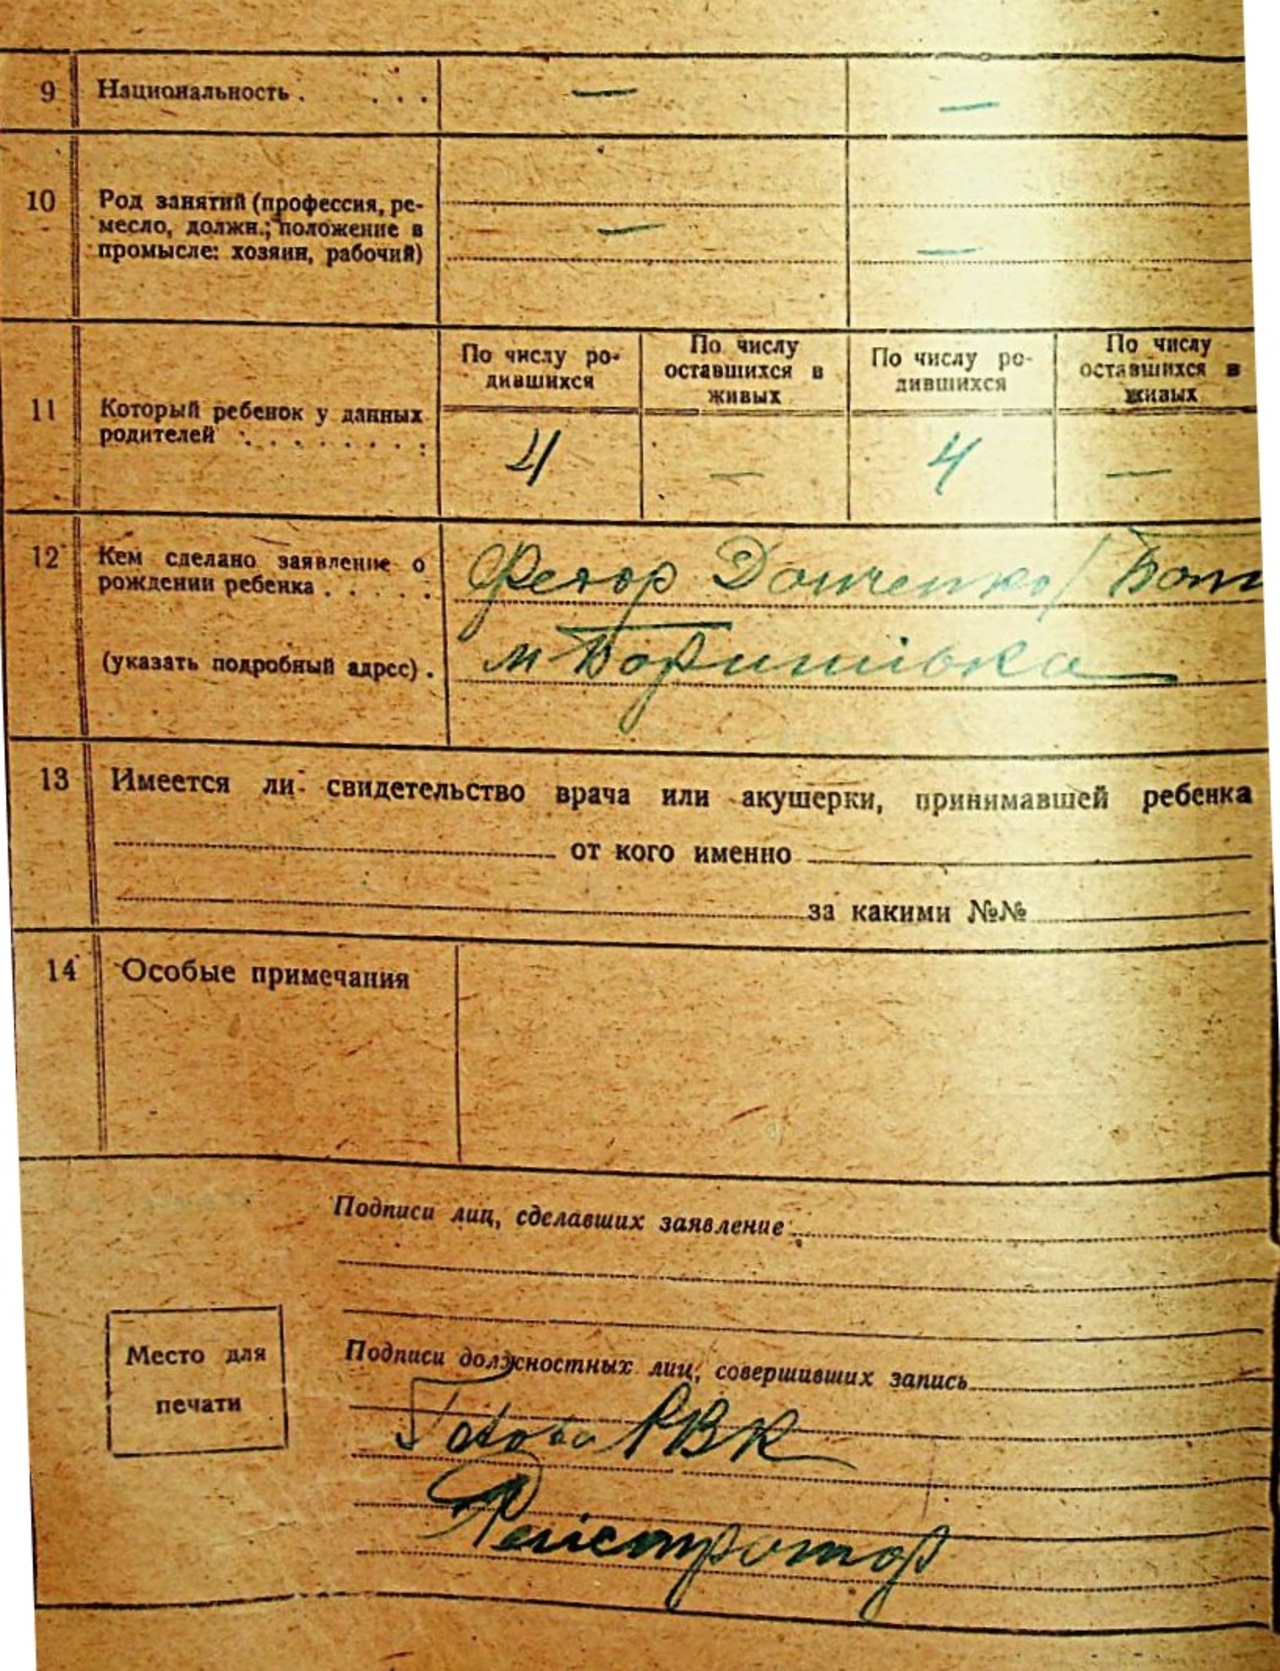 9 Национальность . . . . — —
10 Род занятий (профессия, ре-
месло, должн.; положение в — —
промысле: хозяин, рабочий)
По числу ро-
дившихся
По числу
оставшихся в
живых
По числу ро-
дившихся
По числу
оставшихся в
живых
11 Который ребенок у данных
родителей . . . . . . . .
4 — 4 —
12 Кем сделано заявление о
рождении ребенка . . . . .
Федор Донченко / Бат
(указать подробный адрес) . м
13 Имеется ли свидетельство врача или акушерки, принимавшей ребенка
от кого именно
за какими №№
14 Особые примечания
Подписи лиц, сделавших заявление
Место для
печати
Подписи должностных лиц, совершивших запись
Голова РВК
Реїстратор